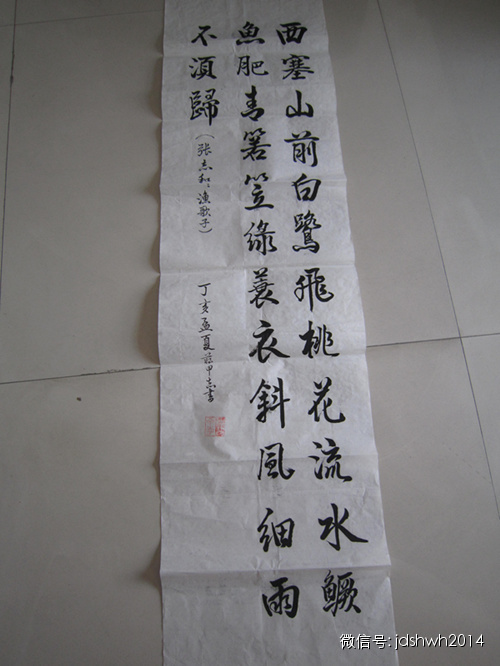 西塞山前白鹭飛桃花流水鳜
魚肥青箬笠綠蓑衣斜風细雨
不湏歸（張志和、漁歌子）
丁亥孟夏 甲志書
微信号: jdshwh2014